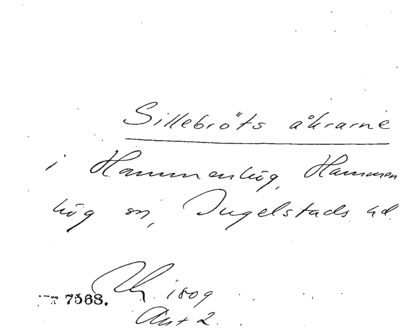 Sillebröts åkrarne
i Hammenhög, Hammen
hög sn, Ingelstads hd.
1809
7568.
Akt 2.